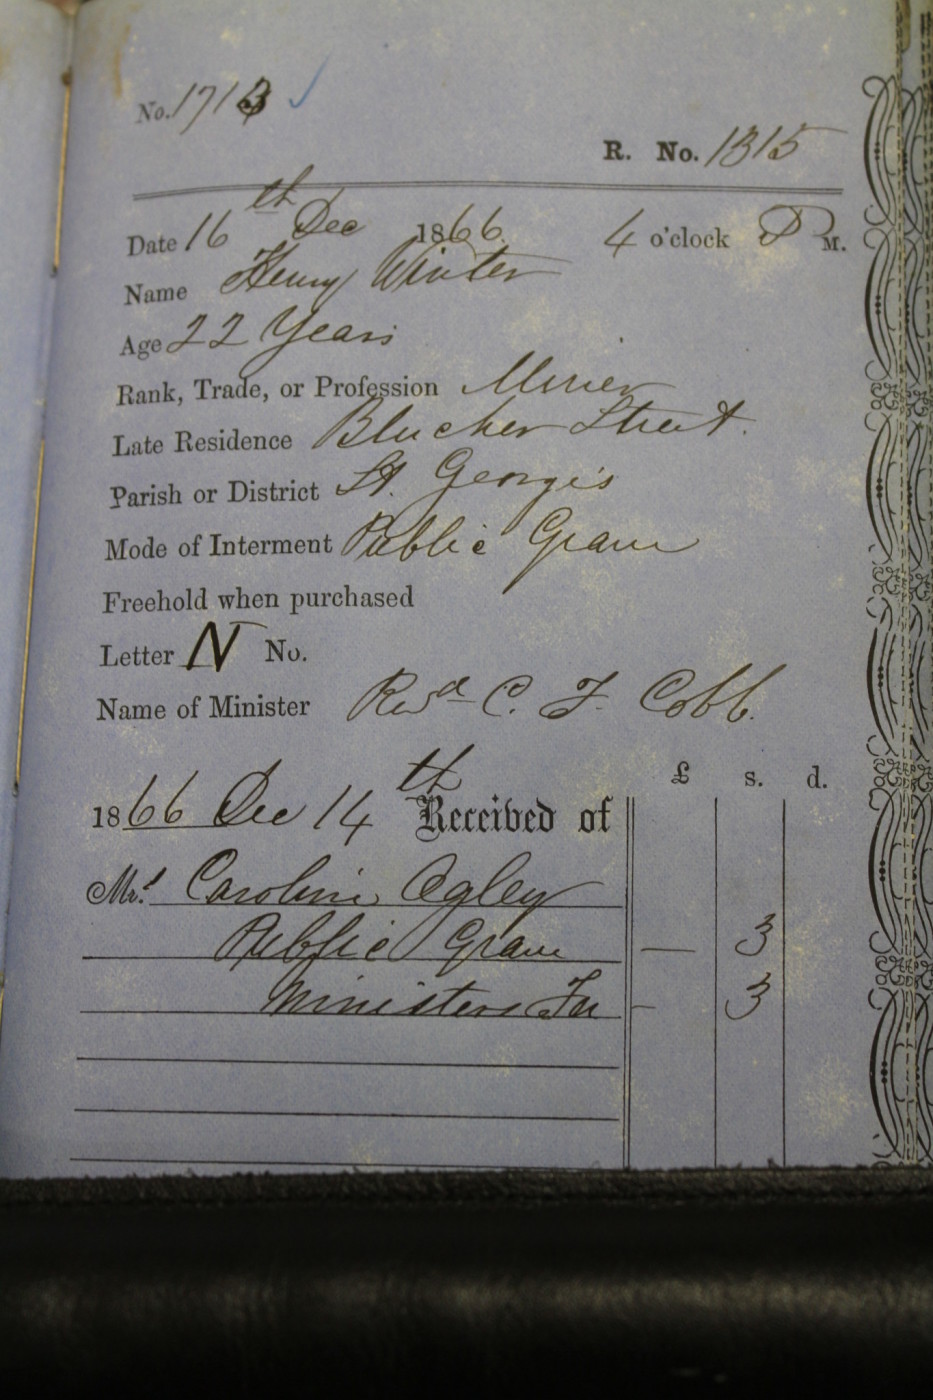 No. 1713 ✓
R. No. 1315
Date 16th Dec 1866. 4 o'clock P M.
Name Henry Winter
Age 22 Years
Rank, Trade, or Profession Miner
Late Residence Blucher Street.
Parish or District St. Georges
Mode of Interment Public Grave
Freehold when purchased
Letter N No.
Name of Minister Revd C. F. Cobb.
£ s. d.
1866 Dec 14th Received of
Mrs. Caroline Ogley
Public Grave — 3
Ministers Fee - 3